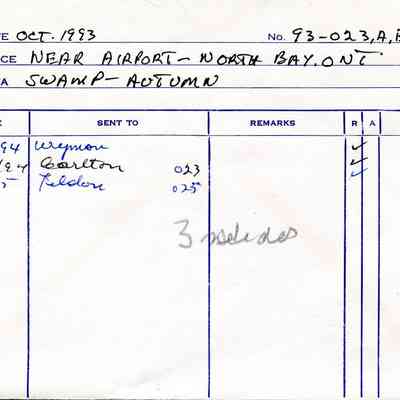 TE OCT. 1993 No. 93-023,A,B
CE NEAR AIRPORT - NORTH BAY. ONT
A SWAMP - AUTUMN
E SENT TO REMARKS R A
94 Wyman ✓
94 Carlton 023 ✓
5 025 ✓
3